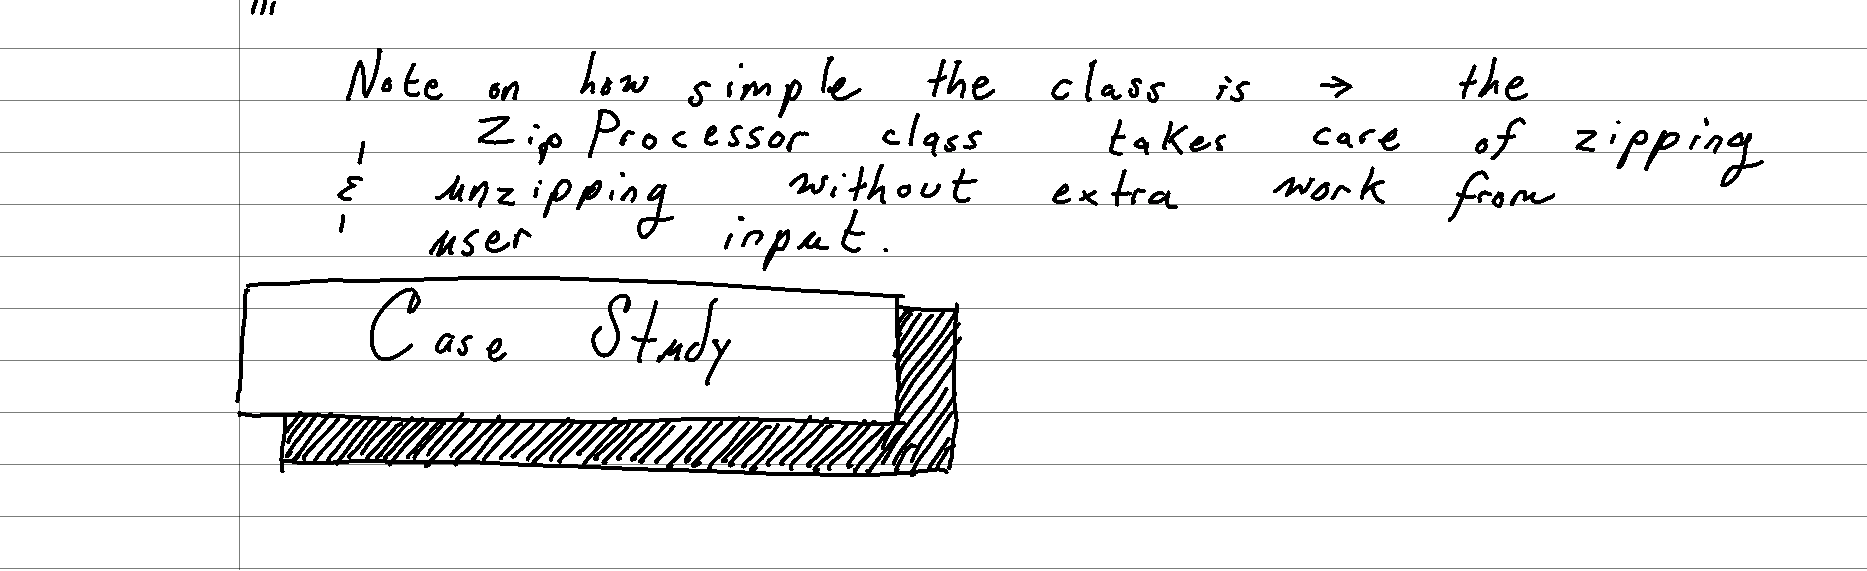 Note on how simple the class is → the
ZipProcessor class takes care of zipping
& unzipping without extra work from
user input.
Case Study